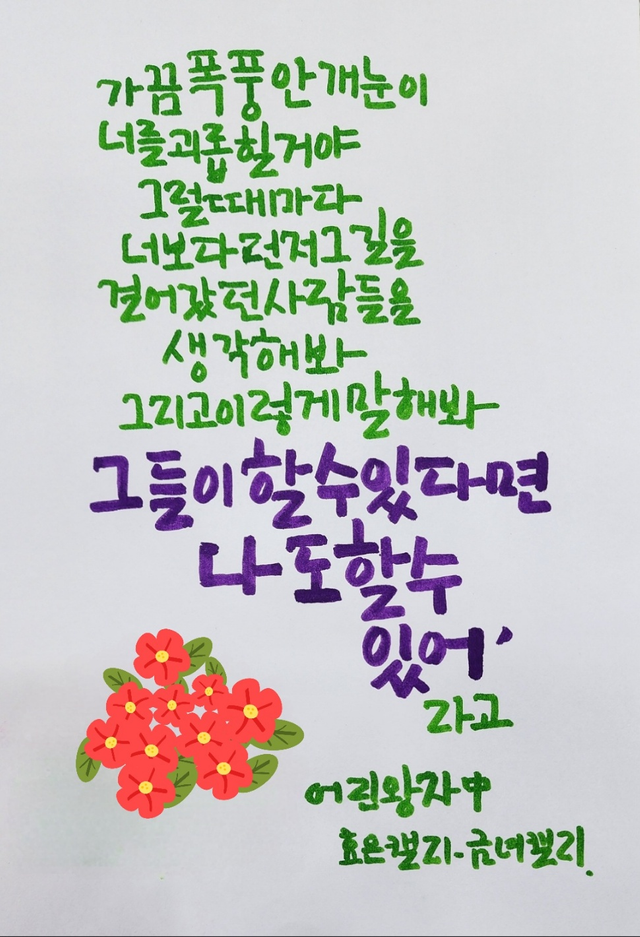 가끔 폭풍 안개 눈이
너를 괴롭힐 거야
그럴 때마다
너보다 먼저 그 길을
걸어갔던 사람들을
생각해봐
그리고 이렇게 말해봐
그들이 할 수 있다면
나도 할 수
있어'
라고
어린왕자 中
효은캘리-금녀캘리.